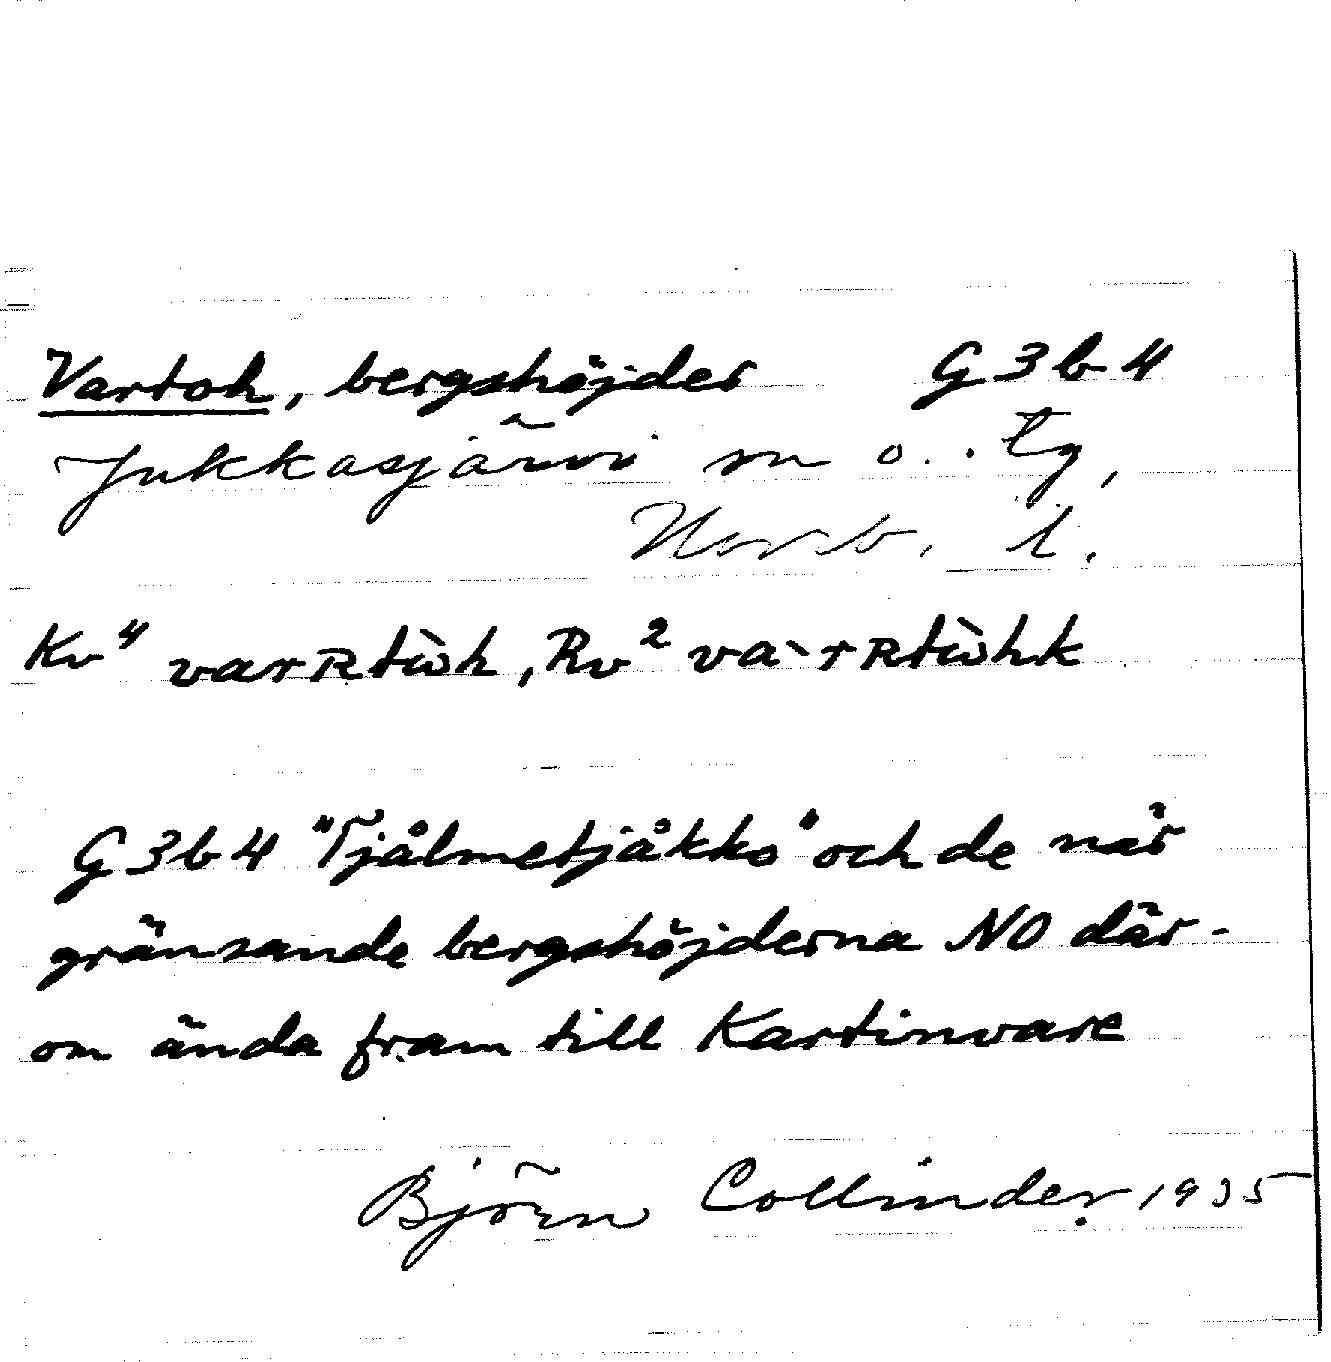 Vartoh, bergshöjder G3b4
Jukkasjärvi sn o. tg,
Norrb. l.
Kv⁴ varʀtẁh, Rv² va`rʀtẁhk
G3b4 "Tjålmetjåkko" och de när
gränsande bergshöjderna NO där-
om ända fram till Kartinvare
Björn Collinder 1935